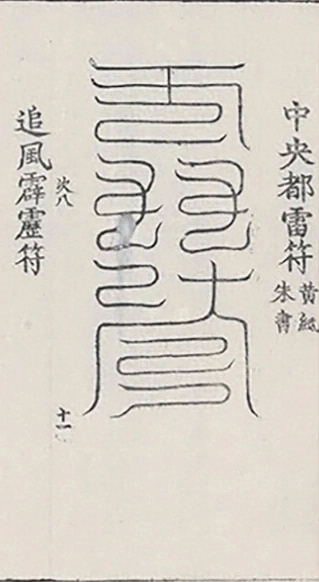 中央都雷符
黄紙
朱書
十一
追風霹靂符